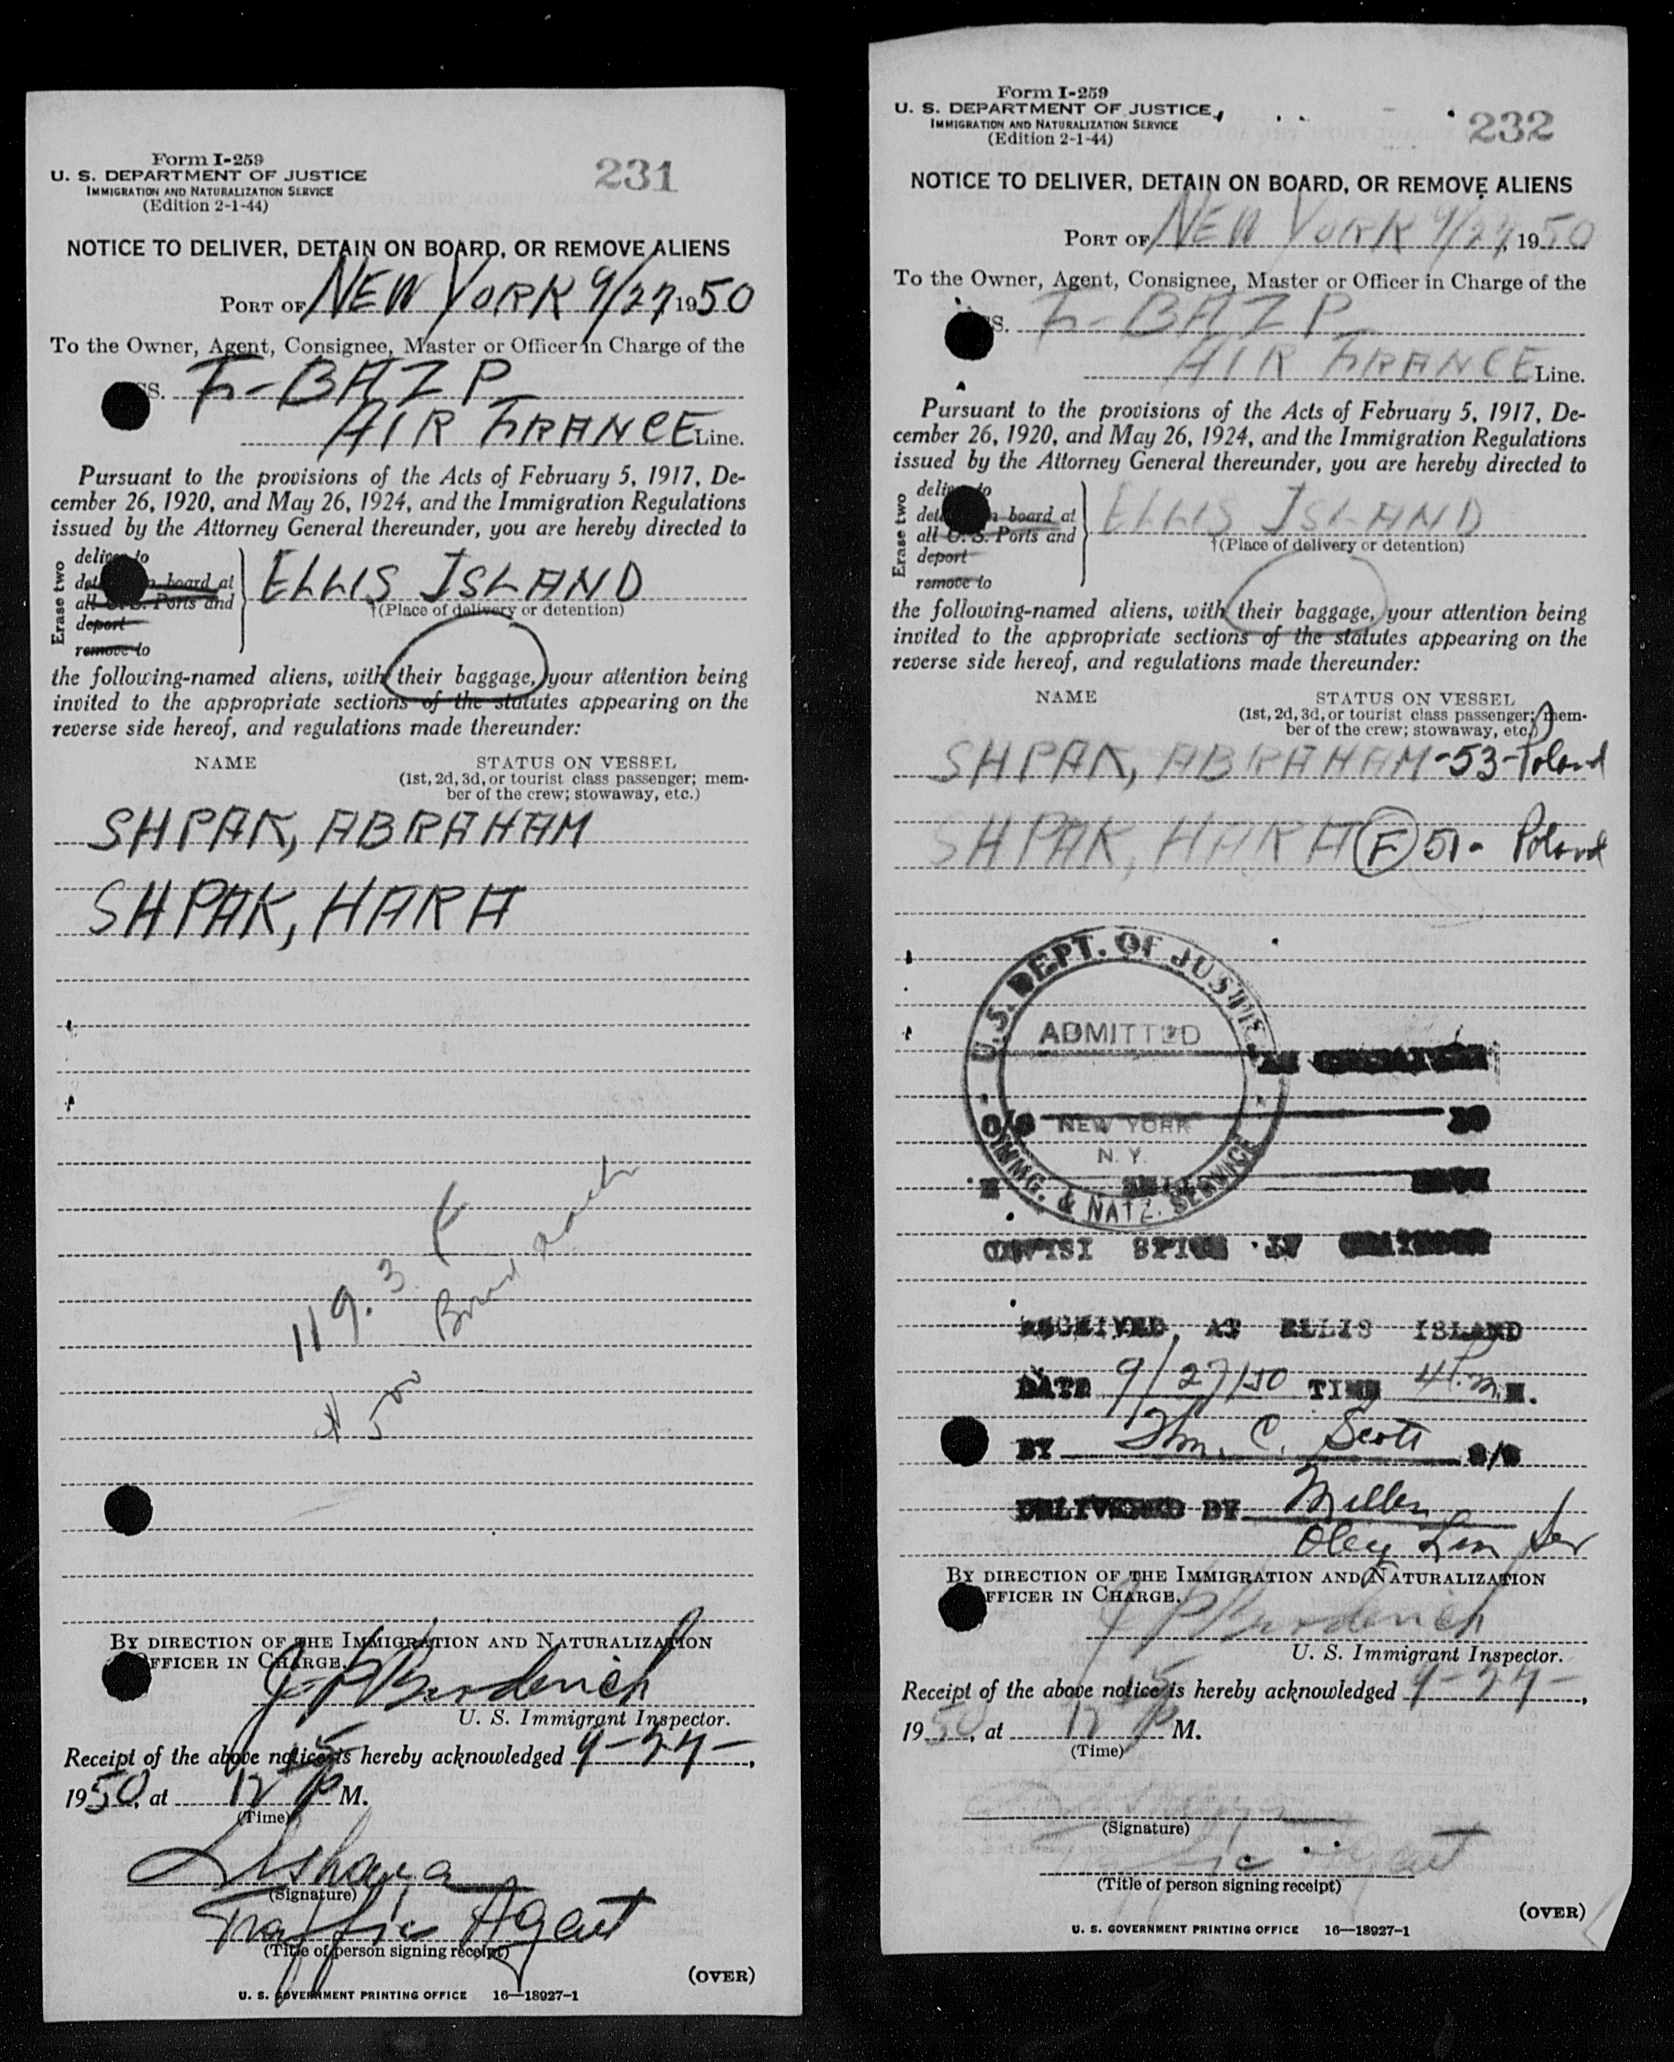 Form I-259
U. S. DEPARTMENT OF JUSTICE
IMMIGRATION AND NATURALIZATION SERVICE
(Edition 2-1-44)
231
NOTICE TO DELIVER, DETAIN ON BOARD, OR REMOVE ALIENS
PORT OF NEW YORK 9/27, 1950
To the Owner, Agent, Consignee, Master or Officer in Charge of the
SS. F-BAZP
AIR FRANCE Line.
Pursuant to the provisions of the Acts of February 5, 1917, De-
cember 26, 1920, and May 26, 1924, and the Immigration Regulations
issued by the Attorney General thereunder, you are hereby directed to
Erase two
deliver to
det board at
all U. S. Ports and
deport
remove to
ELLIS ISLAND
†(Place of delivery or detention)
the following-named aliens, with their baggage, your attention being
invited to the appropriate sections of the statutes appearing on the
reverse side hereof, and regulations made thereunder:
NAME
STATUS ON VESSEL
(1st, 2d, 3d, or tourist class passenger; mem-
ber of the crew; stowaway, etc.)
SHPAK, ABRAHAM
SHPAK, HARA
119.3
Bond each
500
BY DIRECTION OF THE IMMIGRATION AND NATURALIZATION
OFFICER IN CHARGE.
U. S. Immigrant Inspector.
Receipt of the above notice is hereby acknowledged 9-27-,
1950, at 12 15 P M.
(Time)
(Signature)
Traffic Agent
(Title of person signing receipt)
(OVER)
U. S. GOVERNMENT PRINTING OFFICE 16—18927-1
Form I-259
U. S. DEPARTMENT OF JUSTICE
IMMIGRATION AND NATURALIZATION SERVICE
(Edition 2-1-44)
232
NOTICE TO DELIVER, DETAIN ON BOARD, OR REMOVE ALIENS
PORT OF NEW YORK 9/27, 1950
To the Owner, Agent, Consignee, Master or Officer in Charge of the
S. F-BAZP
AIR FRANCE Line.
Pursuant to the provisions of the Acts of February 5, 1917, De-
cember 26, 1920, and May 26, 1924, and the Immigration Regulations
issued by the Attorney General thereunder, you are hereby directed to
Erase two
deliver to
det n board at
all U. S. Ports and
deport
remove to
ELLIS ISLAND
†(Place of delivery or detention)
the following-named aliens, with their baggage, your attention being
invited to the appropriate sections of the statutes appearing on the
reverse side hereof, and regulations made thereunder:
NAME
STATUS ON VESSEL
(1st, 2d, 3d, or tourist class passenger; mem-
ber of the crew; stowaway, etc.)
SHPAK, ABRAHAM -53- Poland
SHPAK, HARA (F) 51- Poland
U.S. DEPT. OF JUSTICE
ADMITTED
NEW YORK
N. Y.
IMMG. & NATZ. SERVICE
RECEIVED AT ELLIS ISLAND
DATE 9/27/50 TIME 4 P.M. M.
BY Wm. C. Scott
DELIVERED BY Miller
BY DIRECTION OF THE IMMIGRATION AND NATURALIZATION
OFFICER IN CHARGE.
U. S. Immigrant Inspector.
Receipt of the above notice is hereby acknowledged 9-27-,
1950, at 12 15 P M.
(Time)
(Signature)
Traffic Agent
(Title of person signing receipt)
(OVER)
U. S. GOVERNMENT PRINTING OFFICE 16—18927-1